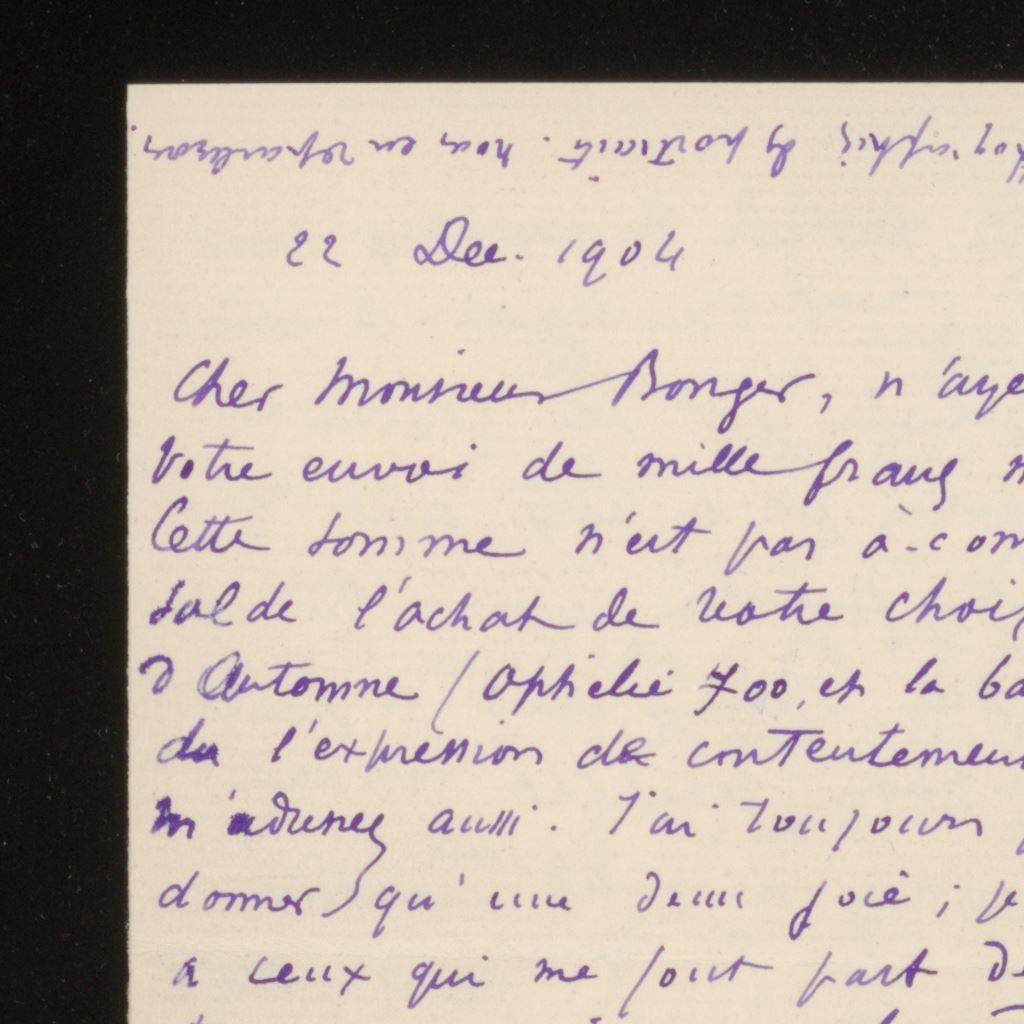 22 Dec. 1904
Cher Monsieur Bonger, n'aye
Votre envoi de mille francs
Cette somme n'est pas à-com
solde l'achat de votre choix
d'Automne (Ophélie 700, et la ba
du l'expression de contentement
m'adressez aussi. J'ai toujours
donner qu'une demi joie ; je
à ceux qui me font part de
photographies de portraits. nous en reparlerons.